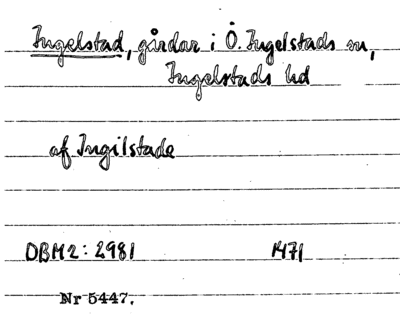 Ingelstad, gårdar i Ö. Ingelstads sn,
Ingelstads hd
af Ingilstade
DBM2: 2981 1471
Nr 5447.